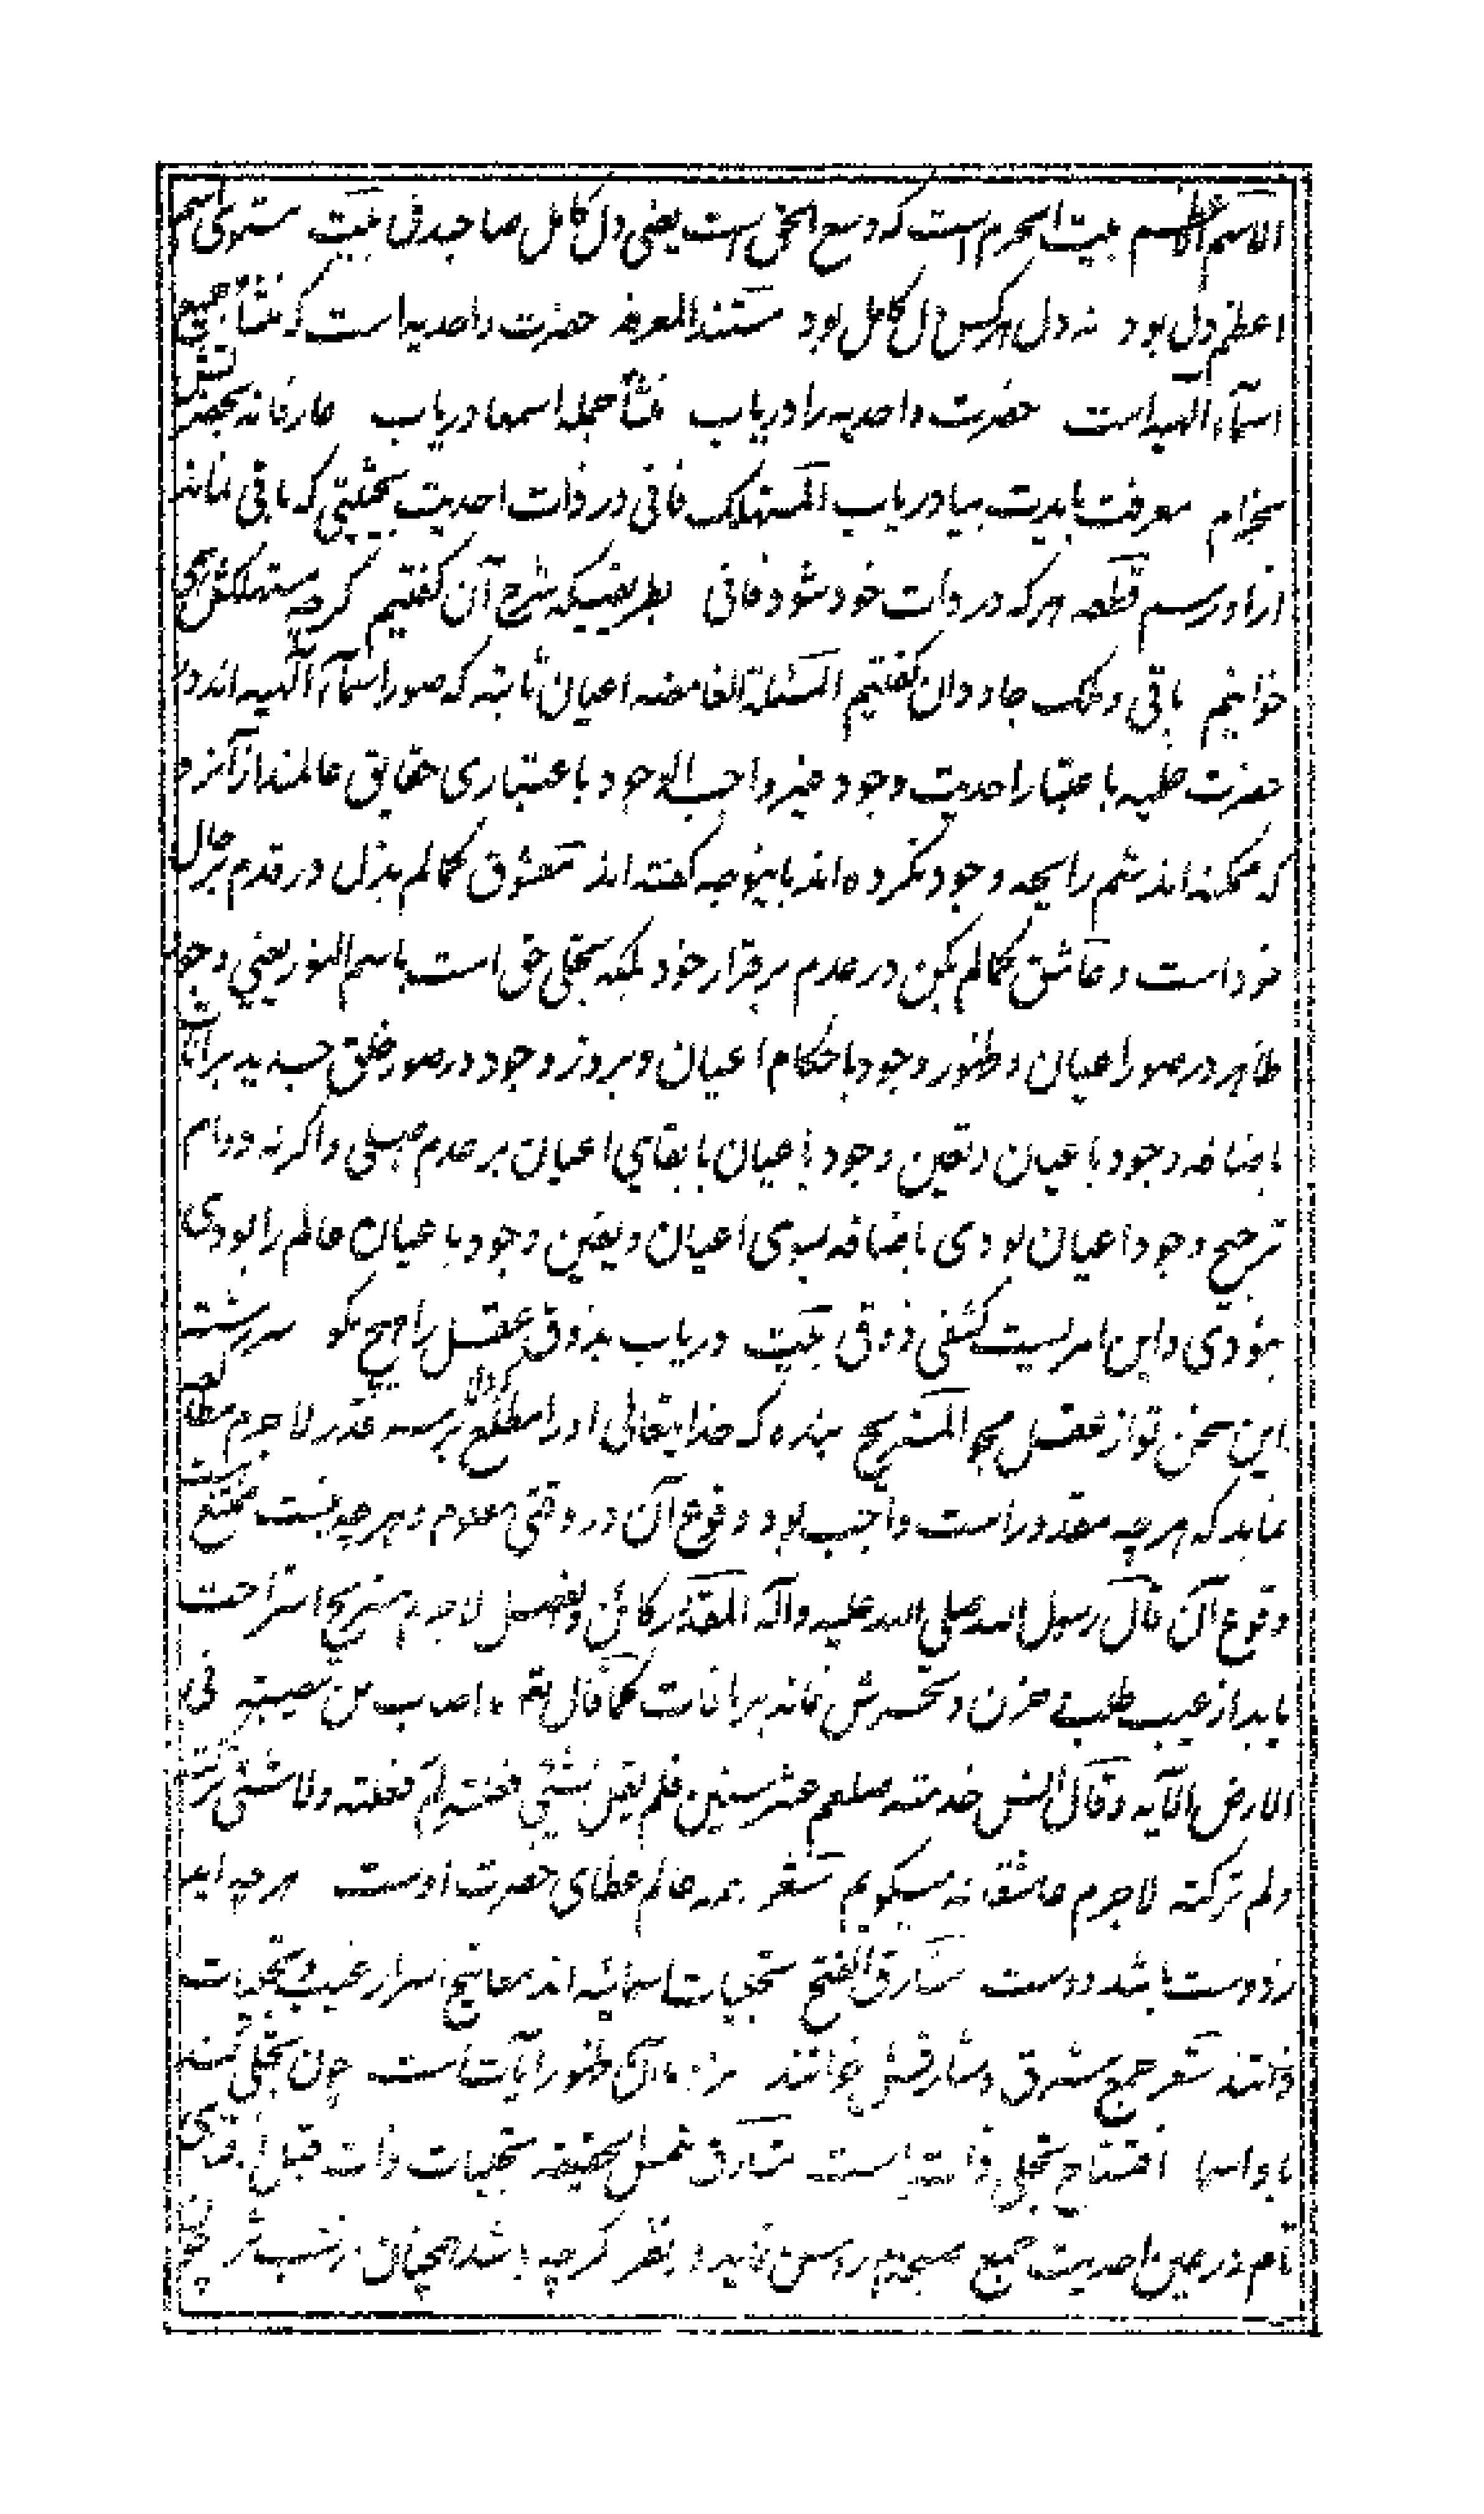 الاسم الاعظم بیت الحرم است که وسع الحق است یعنی دل کامل صاحبدل بیت مستوی اسم
اعظم دل بود نه دل هرکس دل کامل بود مستند المعرفه حضرت واحدیه است که منشأ جمیع
اسمآء الهیه است حضرت واحدیه را دریاب منشأ جمله اسمها دریاب عارفانه بحضرتش
بخرام معرفت بایدت بیا دریاب المستهلک فانی در ذات احدیت بحیثیتی که باقی نماند
ازو رسم قطعه هرکه در ذات خود شود فانی بطریقیکه شرح آن گفتیم گرچه مستهلکش همی
خوانیم باقی و ملک جاودان گفتیم المسئلة الغامضه اعیان ثابته که صور اسمآء الهیه اند در
حضرت علمیه باعتبار احدیت وجود غیر واجب الوجود باعتباری حقایق عالمند از آنرو
که ممکنه اند شم رایحه وجود نکرده اند باینوجه گفته اند معشوق کمالم یزل در قدم بر حال
خود است و عاشق کمالم یکن در عدم برقرار خود بلکه تجلی حق است باسم النور یعنی وجود
ظاهر در صور اعیان و ظهور وجود باحکام اعیان و بروز وجود در صور خلق جدید بر آنات
باضافه وجود باعیان و تعین وجود باعیان با بقای اعیان بر عدم اصلی و اگر نه دوام
ترجیح وجود اعیان بودی باضافه بسوی اعیان و تعین وجود باعیان عالم را بودی
نبودی و این امریست کشفی ذوقی بیت دریاب بذوق عقل را هیچ مگو سررشته
این سخن تو از عقل مجو المستریح بنده که خدایتعالی او را مطلع گرداند بر سر قدر لاجرم مطالعه
نماید که هرچه مقدور است واجب بود وقوع آن در وقتی معلوم و هرچه نیست ممتنع
وقوع آن قال رسول الله صلی الله علیه وآله المقدر کائن لاجرم مستریح استراحت
یابد از عیب طلب حزن و تحسرش نماند بر مافات کما قال تع ما اصاب من مصیبة فی
الارض الآیه و قال انس خدمته صلعم عشر سنین فلم یقل بشیئ فعلته لم فعلته ولا شئی ترکته
ولم ترکته لاجرم عاشقانه میگویم شعر همه عالم عطای حضرت اوست هرچه آید
ز دوست باشد دوست مشارق الفتح تجلیات اسمائیه اند مفاتیح اسرار غیب و تجلیات
ذاتند شعر جمع مشرق مشارقش خوانند مظهر آن ظهور آیات است چون تجلی کند
باو اسما افتتاح تجلی ذات است مشارق شمس الحقیقه تجلیات ذات قبل از فنای
تام در عین احدیت جمع صبحدم روشن نماید در نظر گرچه باشد همچنان